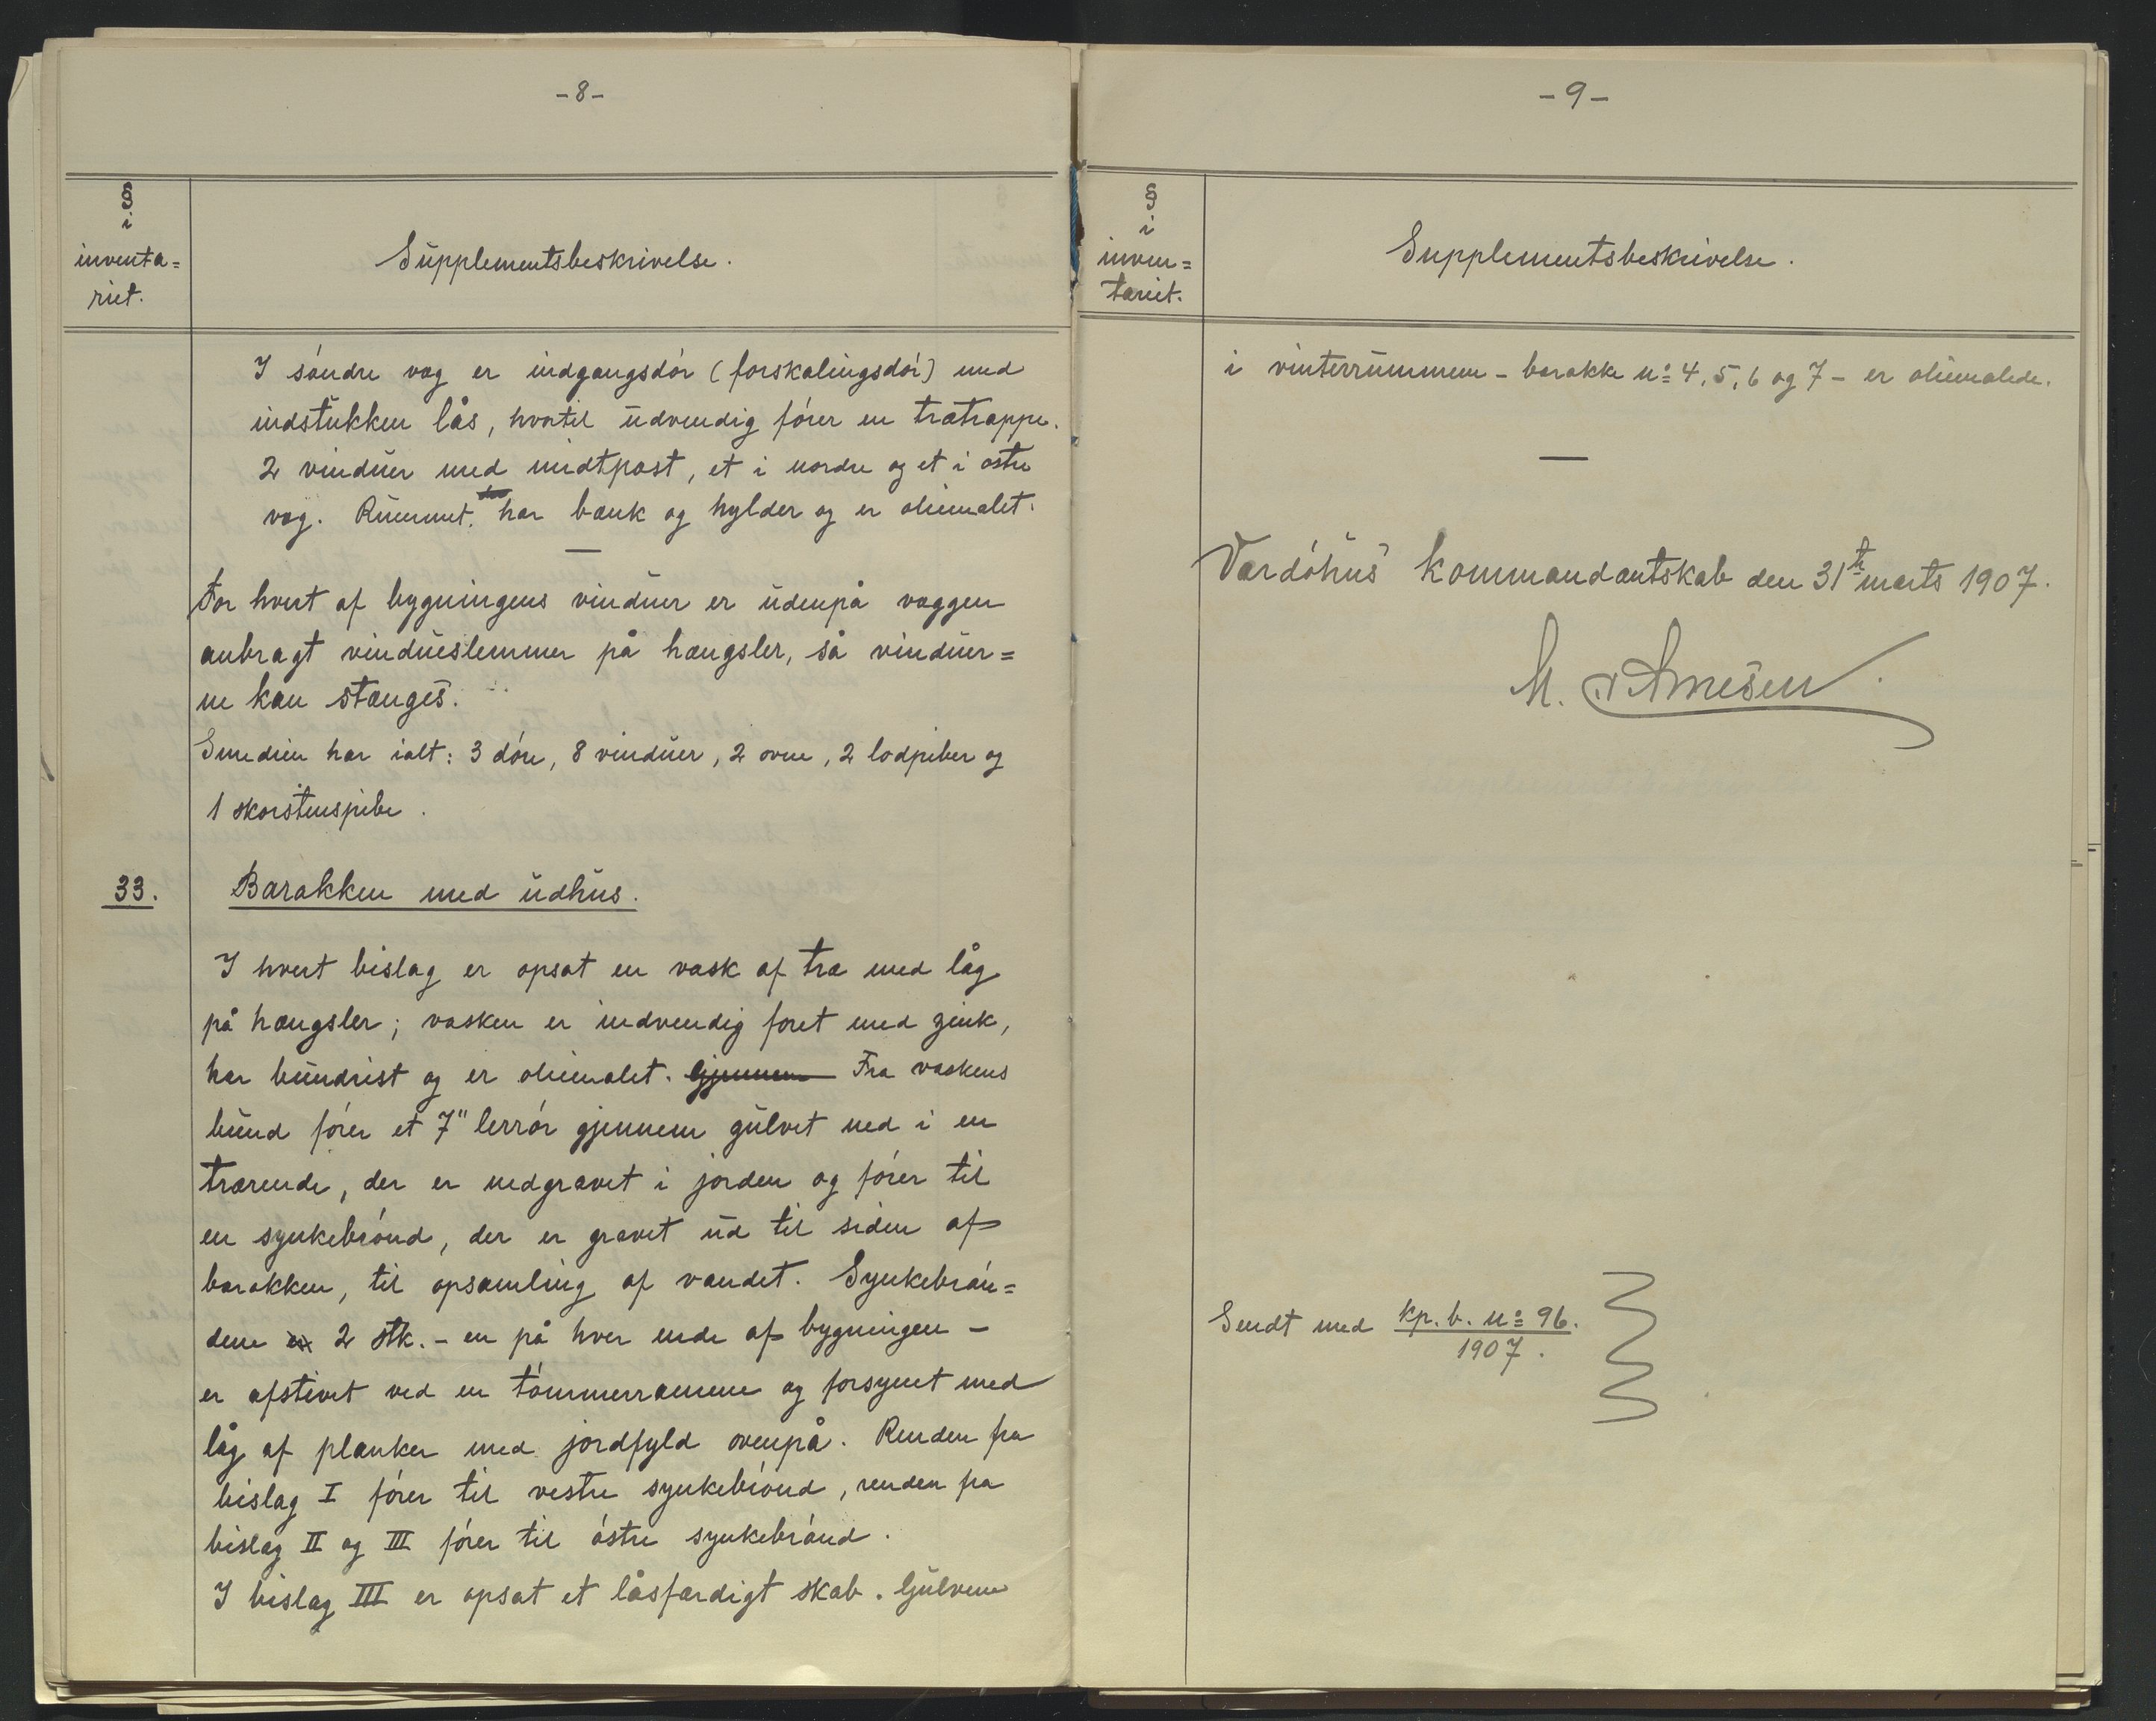 -8-
§
i
inventa=
riet.
Supplementsbeskrivelse.
I søndre væg er indgangsdør (forskalingsdør) med
indstukken lås, hvortil udvendig fører en trætrappe.
2 vinduer med midtpost, et i nordre og et i østre
væg. Rummet har bænk og hylder og er oliemalet.
For hvert af bygningens vinduer er udenpå væggen
anbragt vindueslemmer på hængsler, så vinduer=
ne kan stænges.
Smedien har ialt: 3 døre, 8 vinduer, 2 ovne, 2 lodpiber og
1 skorstenspibe.
33.
Barakken med udhus.
I hvert bislag er opsat en vask af træ med låg
på hængsler; vasken er indvendig foret med zink,
har bundrist og er oliemalet. Gjennem Fra vaskens
bund fører et 7" lerrør gjennem gulvet ned i en
trærende, der er nedgravet i jorden og fører til
en synkebrønd, der er gravet ud til siden af
barakken, til opsamling af vandet. Synkebrøn=
dene er 2 stk. - en på hver ende af bygningen -
er afstivet ved en tømmerramme og forsynet med
låg af planker med jordfyld ovenpå. Renden fra
bislag I fører til vestre synkebrønd, renden fra
bislag II og III fører til østre synkebrønd.
I bislag III er opsat et låsfærdigt skab. Gulvene
-9-
§
i
inven=
tariet.
Supplementsbeskrivelse.
i vinterrummene - barakke nº 4, 5, 6 og 7 - er oliemalede.
Vardøhus kommandantskab den 31te marts 1907.
M. Arnesen
Sendt med kp. b. nº 96.
1907.